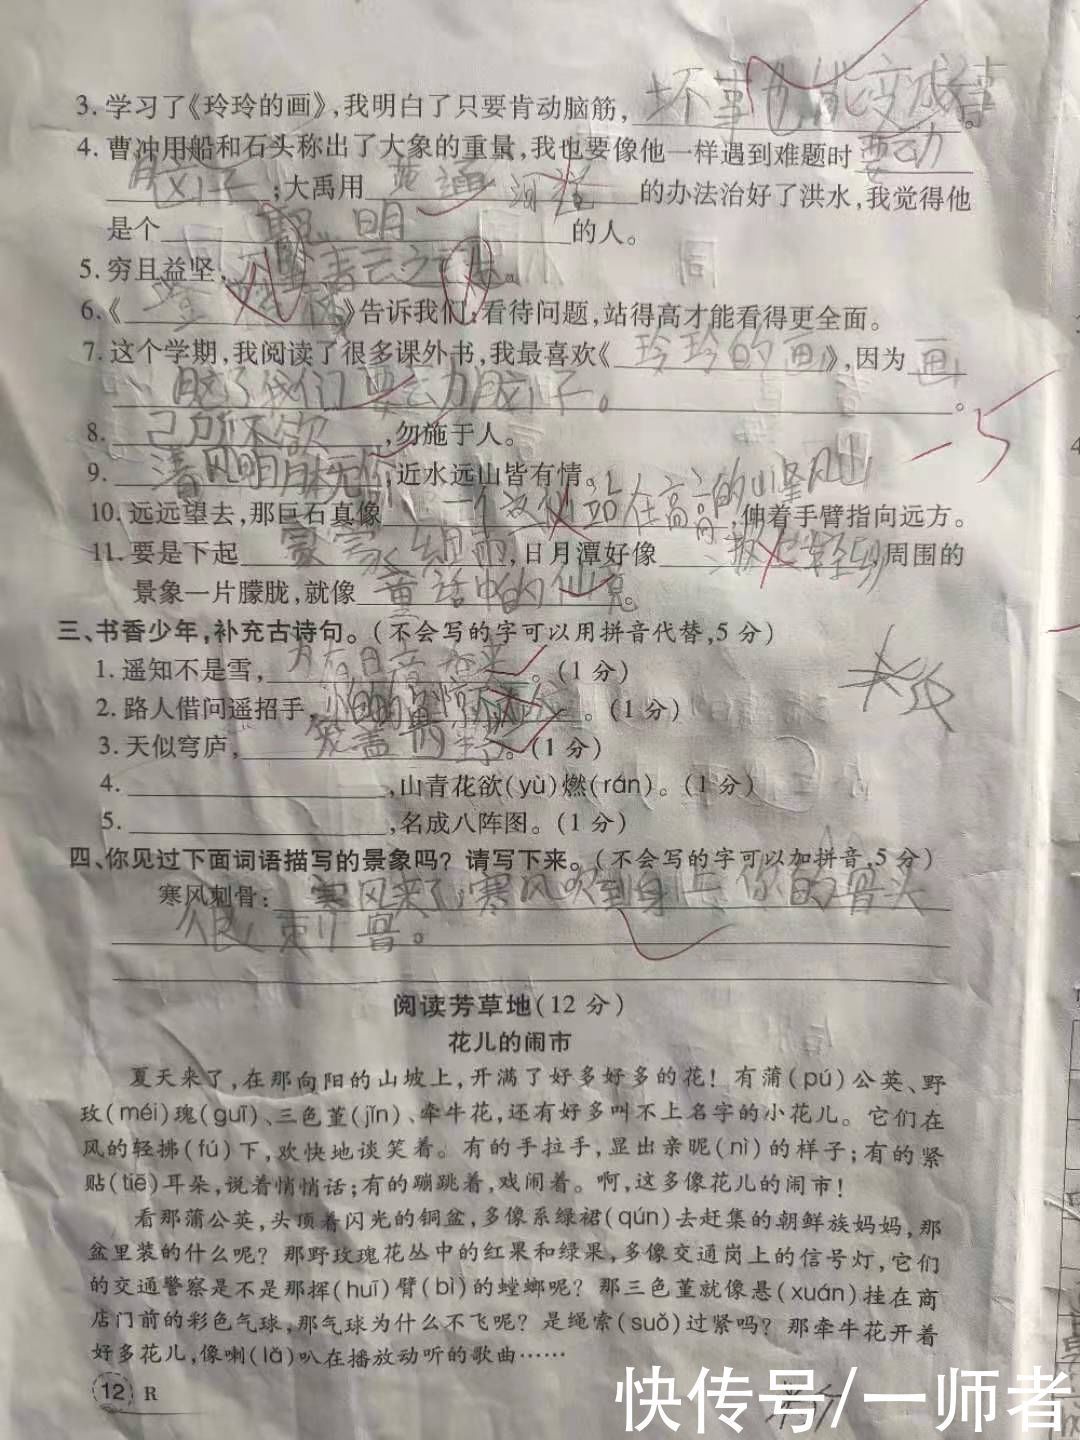 3.学习了《玲玲的画》,我明白了只要肯动脑筋,坏事也能变成。
4.曹冲用船和石头称出了大象的重量,我也要像他一样遇到难题时要动
脑子;大禹用的办法治好了洪水,我觉得他
是个聪明的人。
5.穷且益坚,青云之。
6.《》告诉我们,看待问题,站得高才能看得更全面。
7.这个学期,我阅读了很多课外书,我最喜欢《玲玲的画》,因为画
我们要动脑子。
8.己所不欲,勿施于人。
9.清风明月本无价,近水远山皆有情。
10.远远望去,那巨石真像一个仙站在高高的山,伸着手臂指向远方。
11.要是下起蒙蒙细雨,日月潭好像,周围的
景象一片朦胧,就像童话中的仙境。
三、书香少年,补充古诗句。(不会写的字可以用拼音代替,5分)
1.遥知不是雪,为有暗香来。(1分)
2.路人借问遥招手,怕。(1分)
3.天似穹庐,笼盖野。(1分)
4.,山青花欲(yù)燃(rán)。(1分)
5.,名成八阵图。(1分)
四、你见过下面词语描写的景象吗?请写下来。(不会写的字可以加拼音,5分)
寒风刺骨:寒风来了,寒风吹到身上你的骨头
很刺骨。
阅读芳草地(12分)
花儿的闹市
夏天来了,在那向阳的山坡上,开满了好多好多的花!有蒲(pú)公英、野
玫(méi)瑰(guī)、三色堇(jǐn)、牵牛花,还有好多叫不上名字的小花儿。它们在
风的轻拂(fú)下,欢快地谈笑着。有的手拉手,显出亲昵(nì)的样子;有的紧
贴(tiē)耳朵,说着悄悄话;有的蹦跳着,戏闹着。啊,这多像花儿的闹市!
看那蒲公英,头顶着闪光的铜盆,多像系绿裙(qún)去赶集的朝鲜族妈妈,那
盆里装的什么呢?那野玫瑰花丛中的红果和绿果,多像交通岗上的信号灯,它们
的交通警察是不是那挥(huī)臂(bì)的螳螂呢?那三色堇就像悬(xuán)挂在商
店门前的彩色气球,那气球为什么不飞呢?是绳索(suǒ)过紧吗?那牵牛花开着
好多花儿,像喇(lǎ)叭在播放动听的歌曲……
12 R
快传号/一师者